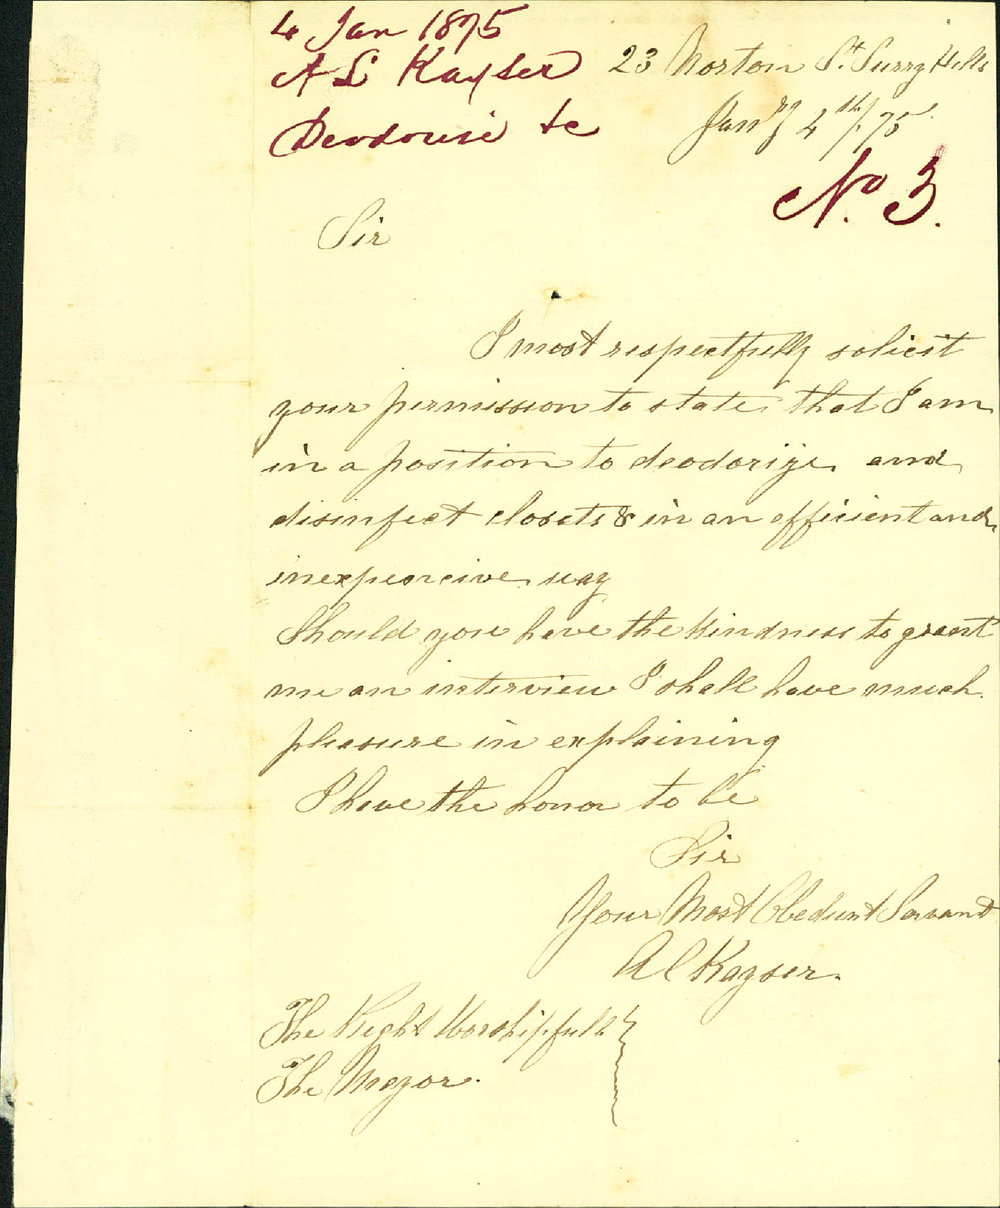 4 Jan 1875
A L Kayser
Deodorise &c
23 Norton St. Surry Hills
Janry 4th/.75
No. 3.
Sir
I most respectfully solicit
your permission to state that I am
in a position to deodorize and
disinfect closets & in an efficient and
inexpencive way
Should you have the kindness to grant
me an interview I shall have much
pleasure in explaining
I have the honor to be
Sir
Your Most Obedient Servant
A C Kayser.
The Right Worshipfull
The Mayor.